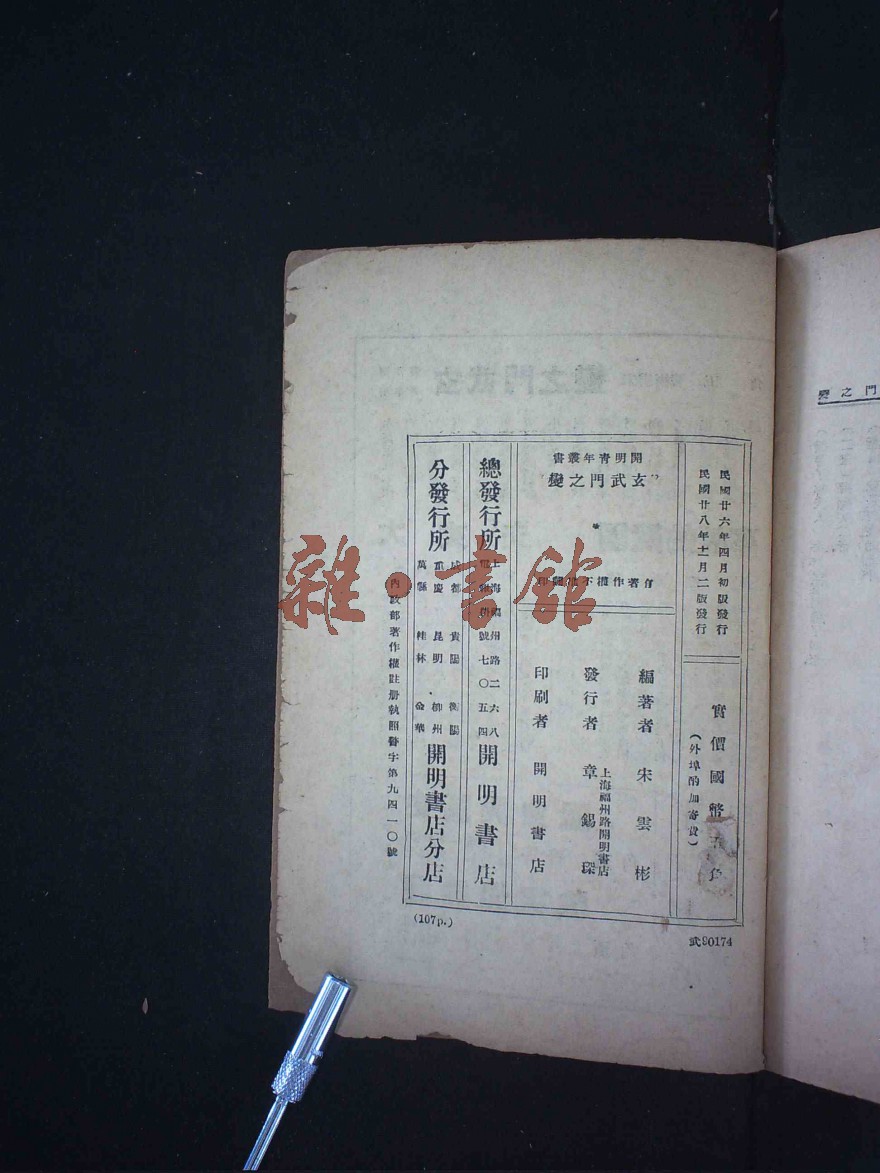 民國廿六年四月初版發行
民國廿八年十一月二版發行
實價國幣
(外埠酌加寄費)
開明青年叢書
“玄武門之變”
有著作權不
編著者 宋雲彬
發行者 章錫琛
上海福州路開明書店
印刷者 開明書店
總發行所
上海福州路二六八
號七〇五四
開明書店
分發行所
成都 貴陽 衡陽
重慶 昆明 柳州
萬縣 桂林 金華
開明書店分店
內政部著作權註册執照警字第九四一〇號
(107p.)
武90174
門之變
雜·書館